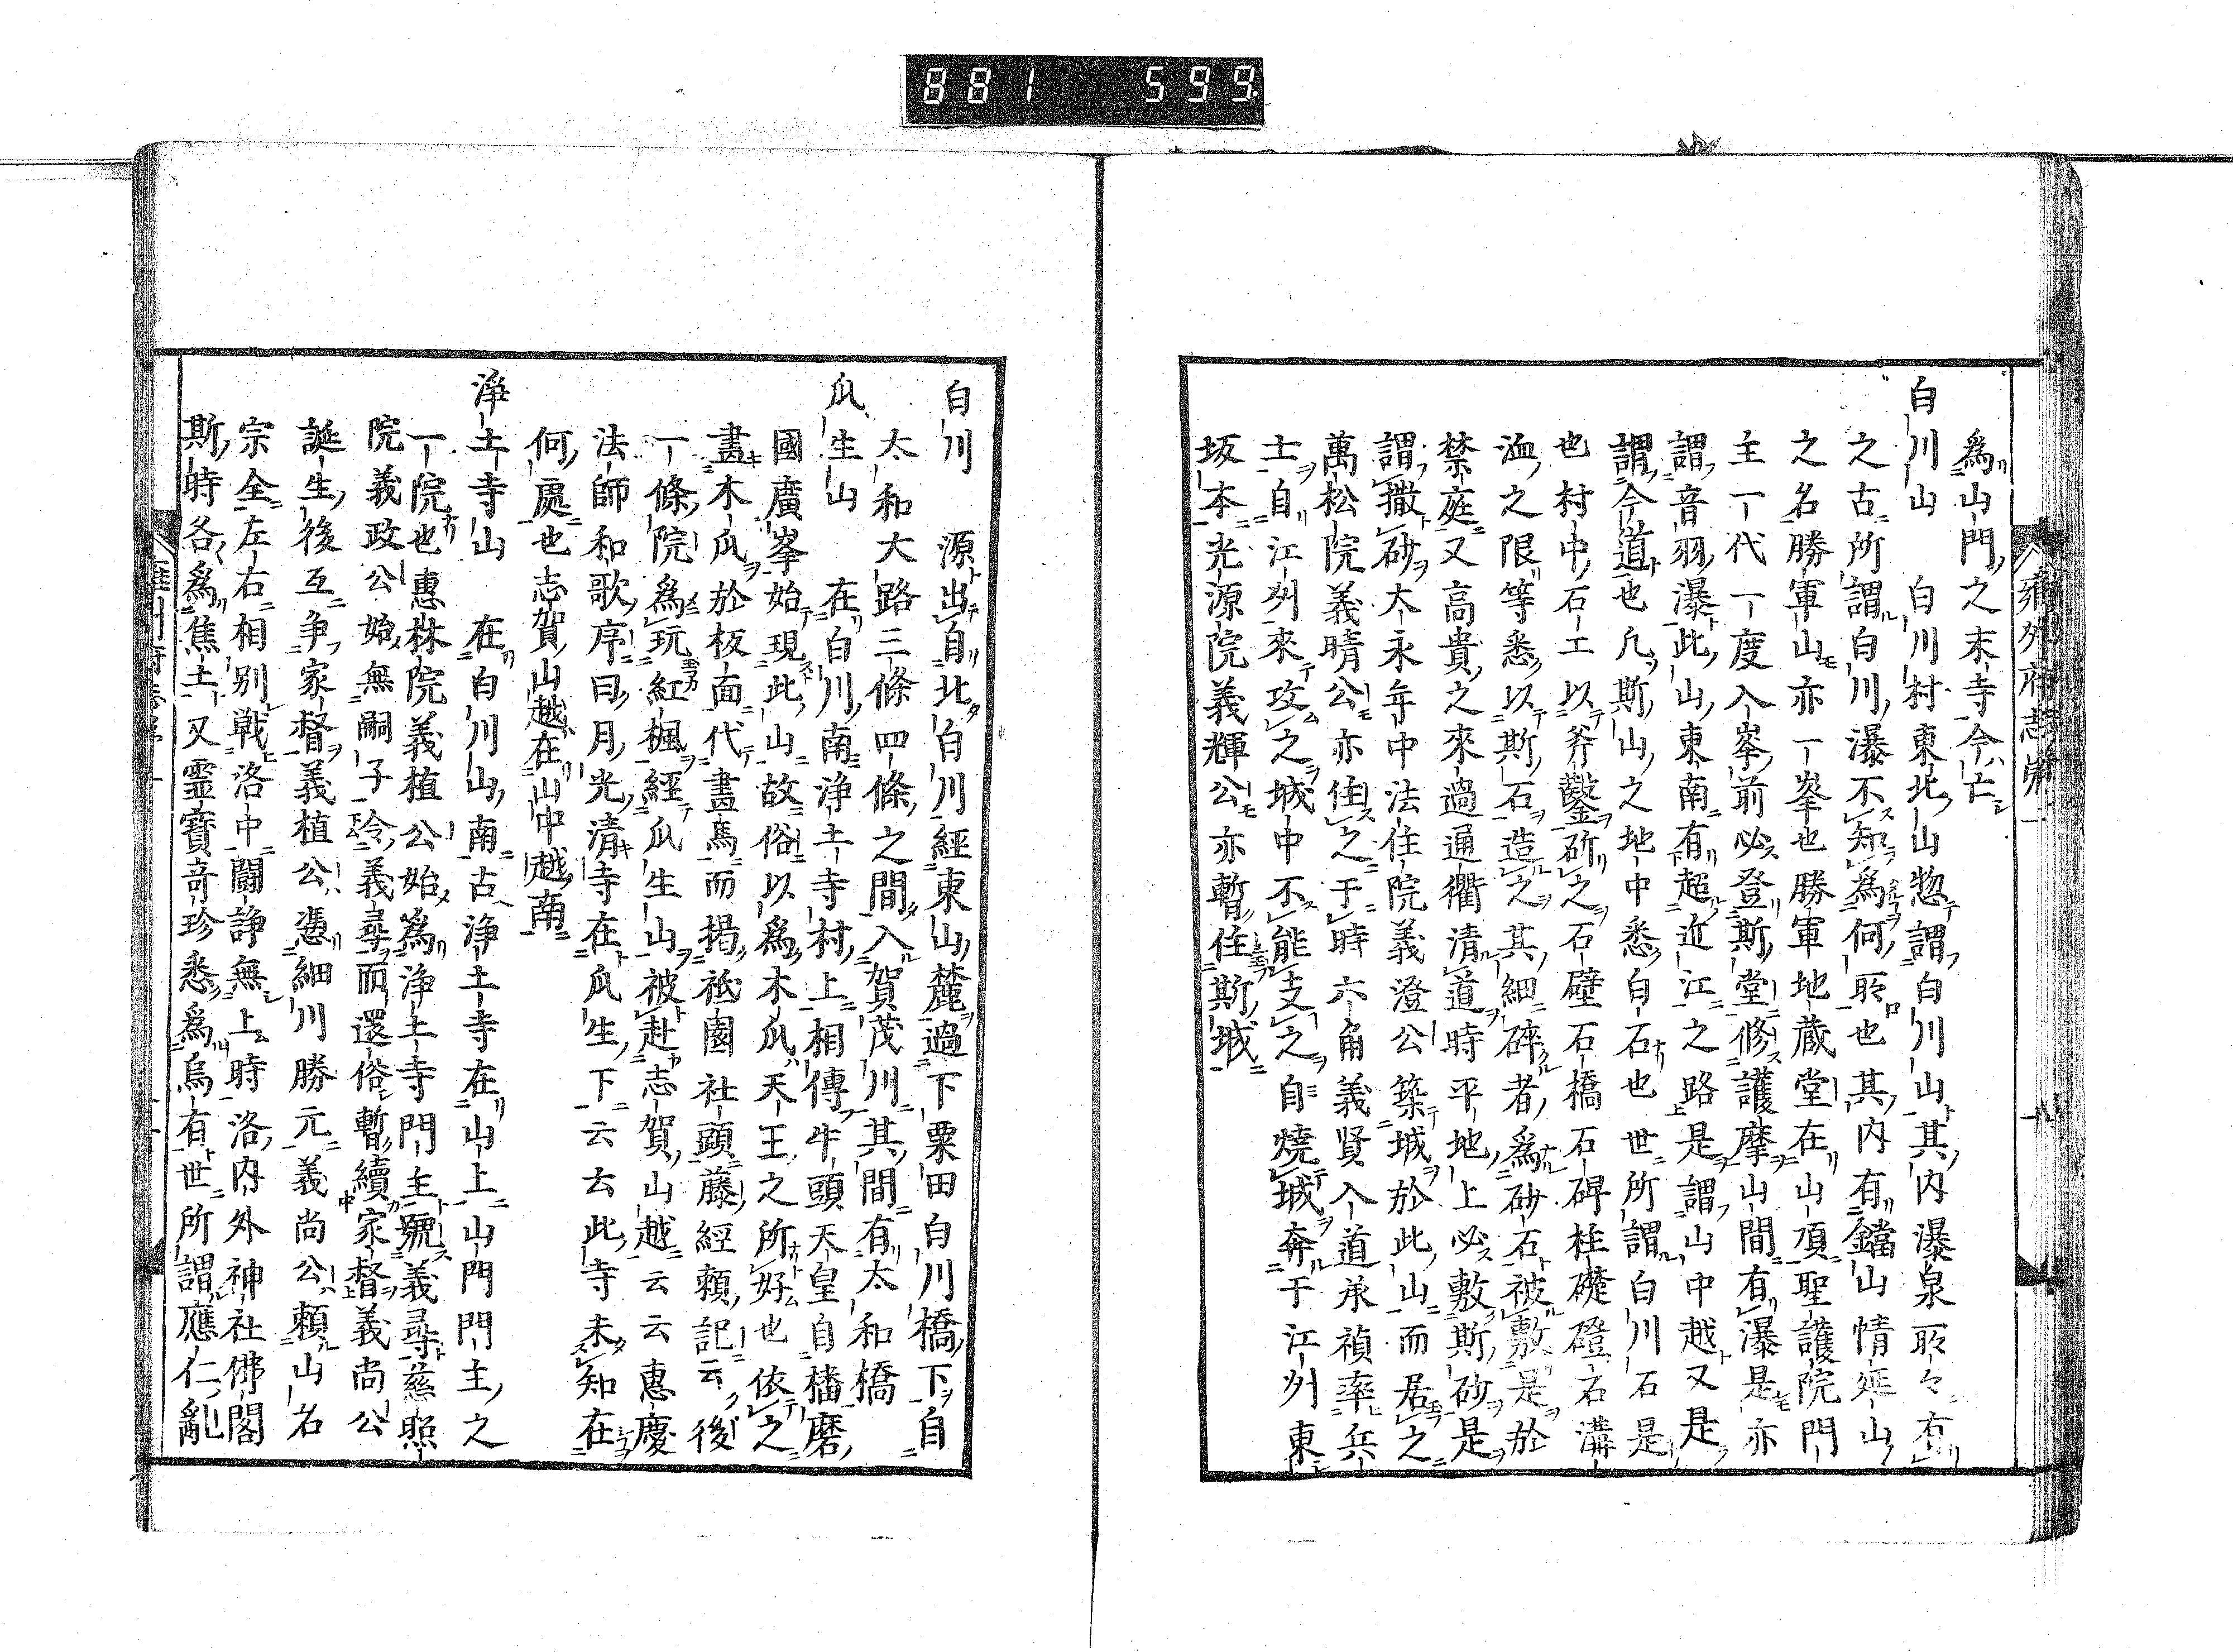 881 599.
爲山門之末寺今亡
白川山 白川村東北山惣謂白川山其内瀑泉所々有
之古所謂白川瀑不知爲何所也其内有鐺山情延山
之名勝軍山亦一峯也勝軍地蔵堂在山頂聖護院門
主一代一度入峯前必登斯堂修護摩山間有瀑是亦
謂音羽瀑此山東南有超近江之路是謂山中越又是
謂今道也凢斯山之地中悉白石也世所謂白川石是
也村中石工以斧鑿斫之石壁石橋石碑柱礎磴石溝
洫之限等悉以斯石造之其細碎者爲砂石被敷是於
禁庭又高貴之來過通衢清道時平地上必敷斯砂是
謂撒砂大永年中法住院義澄公築城於此山而居之
萬松院義晴公亦住之于時六角義賢入道承禎率兵
士自江州來攻之城中不能支之自燒城奔于江州東
坂本光源院義輝公亦暫住斯城
白川 源出自北白川經東山麓過下粟田白川橋下自
大和大路三條四條之間入賀茂川其間有大和橋
瓜生山 在白川南浄土寺村上相傳牛頭天皇自播磨
國廣峯始現此山故俗以爲木瓜天王之所好也依之
畫木瓜於板面代畫馬而掲祇園社顕藤經頼記云後
一條院爲玩紅楓經瓜生山被赴志賀山越云云惠慶
法師和歌序曰月光清寺在瓜生下云云此寺未知在
何處也志賀山越在山中越南
浄土寺山 在白川山南古浄土寺在山上山門門主之
一院也惠林院義植公始爲浄土寺門主號義尋慈照
院義政公始無嗣子令義尋而還俗暫續家督義尚公
誕生後互争家督義植公憑細川勝元義尚公頼山名
宗全左右相別戦洛中鬪諍無上時洛内外神社佛閣
斯時各爲焦土又霊寶竒珍悉爲烏有世所謂應仁亂